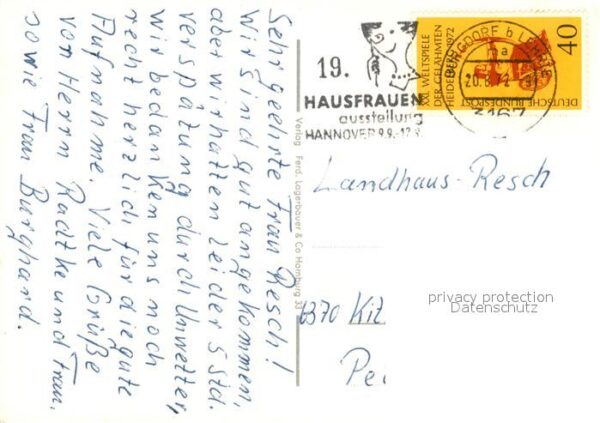 Sehr geehrte Frau Resch!
Wir sind gut angekommen,
aber wir hatten leider 5 Std.
Verspätung durch Unwetter,
wir bedanken uns noch
recht herzlich für die gute
Aufnahme. Viele Grüße
von Herrn Radtke und Frau.
sowie Frau Burghard.
Verlag Ferd. Lagerbauer & Co Hamburg 33
19.
HAUSFRAUEN
ausstellung
HANNOVER 9.9.-17.9.
BURGDORF b LEHRTE
20.8.72
3167
XXI. WELTSPIELE
DER GELÄHMTEN
HEIDELBERG 1972
DEUTSCHE BUNDESPOST
40
Landhaus-Resch
6370 Kit
privacy protection
Datenschutz
Pe